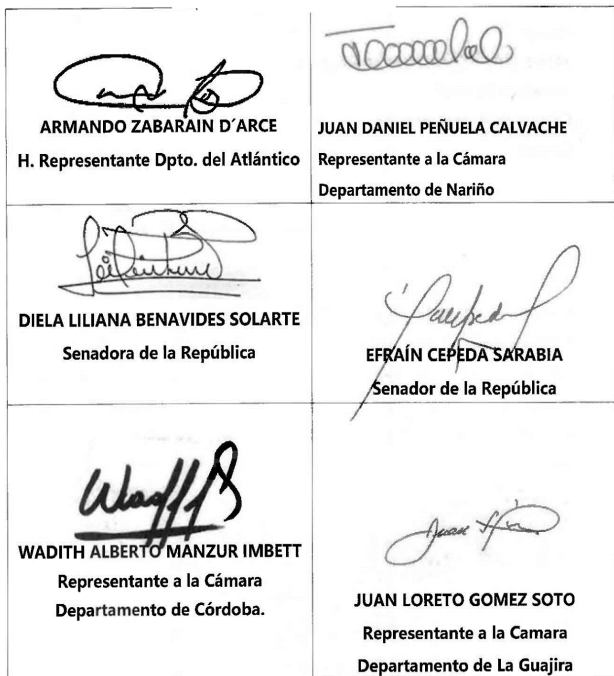 ARMANDO ZABARAIN D´ARCE
H. Representante Dpto. del Atlántico
JUAN DANIEL PEÑUELA CALVACHE
Representante a la Cámara
Departamento de Nariño
DIELA LILIANA BENAVIDES SOLARTE
Senadora de la República
EFRAÍN CEPEDA SARABIA
Senador de la República
WADITH ALBERTO MANZUR IMBETT
Representante a la Cámara
Departamento de Córdoba.
JUAN LORETO GOMEZ SOTO
Representante a la Camara
Departamento de La Guajira